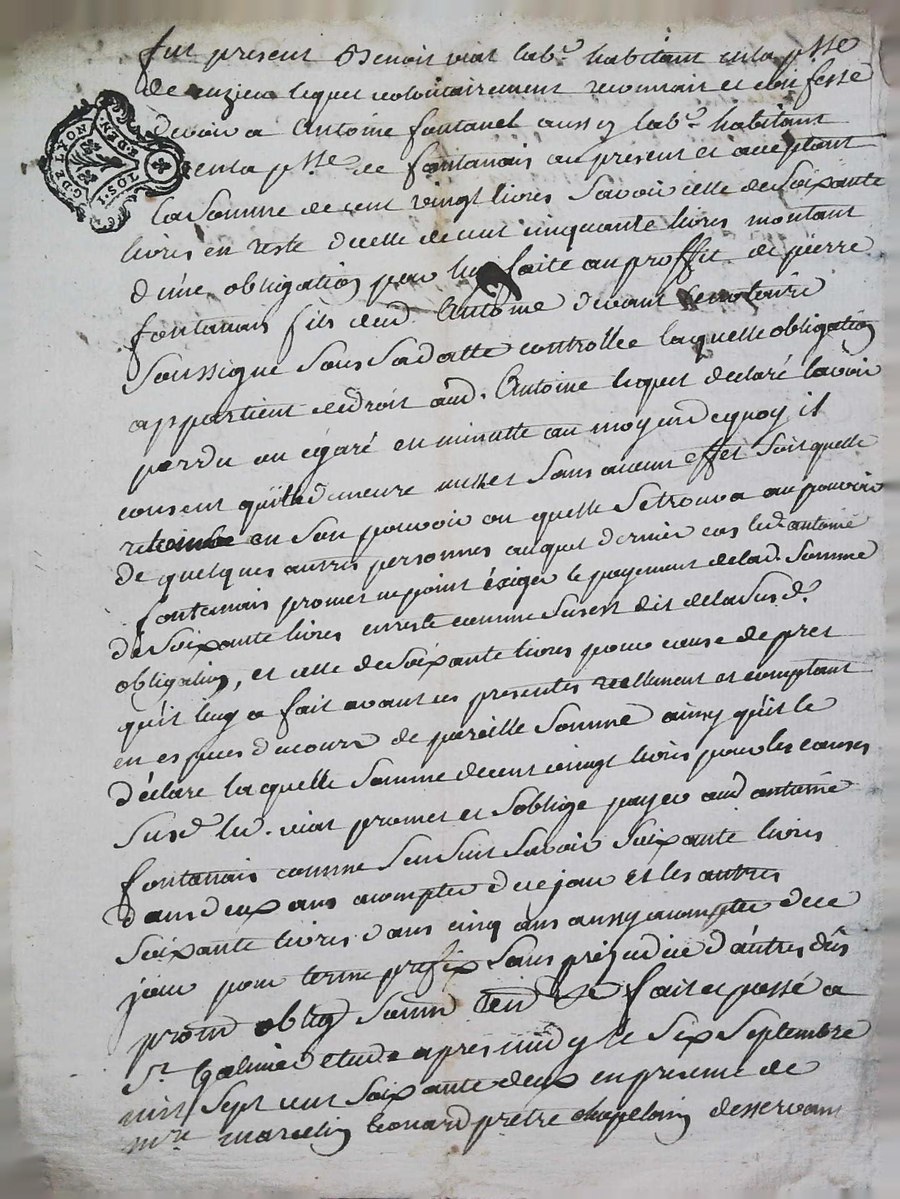 fut present Benoit viat lab.r habitant en la p.sse
de cuzieu lequel volontairement reconnait et confesse
devoir a Antoine fontanel aussy lab.r habitant
G. DE LYON
GEN.
1. SOL
en la p.sse de fontanais au present et acceptant
la Somme de cent vingt livres Savoir celle de Soixante
livres en reste d'celle de cent cinquante livres montant
d'une obligation par luy faite au proffit de pierre
fontanais fils dud. Antoine devant le notaire
Soussigné Sous Sa datte controllée laquelle obligation
appartient de droit aud. Antoine lequel declaré lavoir
perdu ou égaré en minutte au moyend dequoy il
consent qu'elle demeure nulle et Sans aucun effet Soit quelle
retombe en Son pouvoir ou quelle Se trouva au pouvoir
de quelques autres personnes auquel dernier cas led. antoine
fontanais promet ne point éxiger le payement de lad. Somme
de Soixante livres en reste comme Sus est dit de la Sus d.
obligation, et celle de Soixante livres pour cause de pret
qu'il luy a fait avant ces presentes reellement et comptant
en especes d'cours de pareille Somme ainsy qu'il le
déclare laquelle Somme de cent vingt livres pour les causes
Susd. led. viat promet et S'oblige payer aud antoine
fontanais comme S'en Suit Savoir Soixante livres
dans deux ans acompter de ce jour Et les autres
Soixante livres dans cinq ans aussy acompter de ce
jour pour terme prefix Sans préjudice d'autres dûs
prom oblig Soum ren &c fait et passé a
S.t Galmier etude apres midy le Six Septembre
mil Sept cent Soixante deux en presence de
m.re marcelin leonard prêtre chapelain desservant